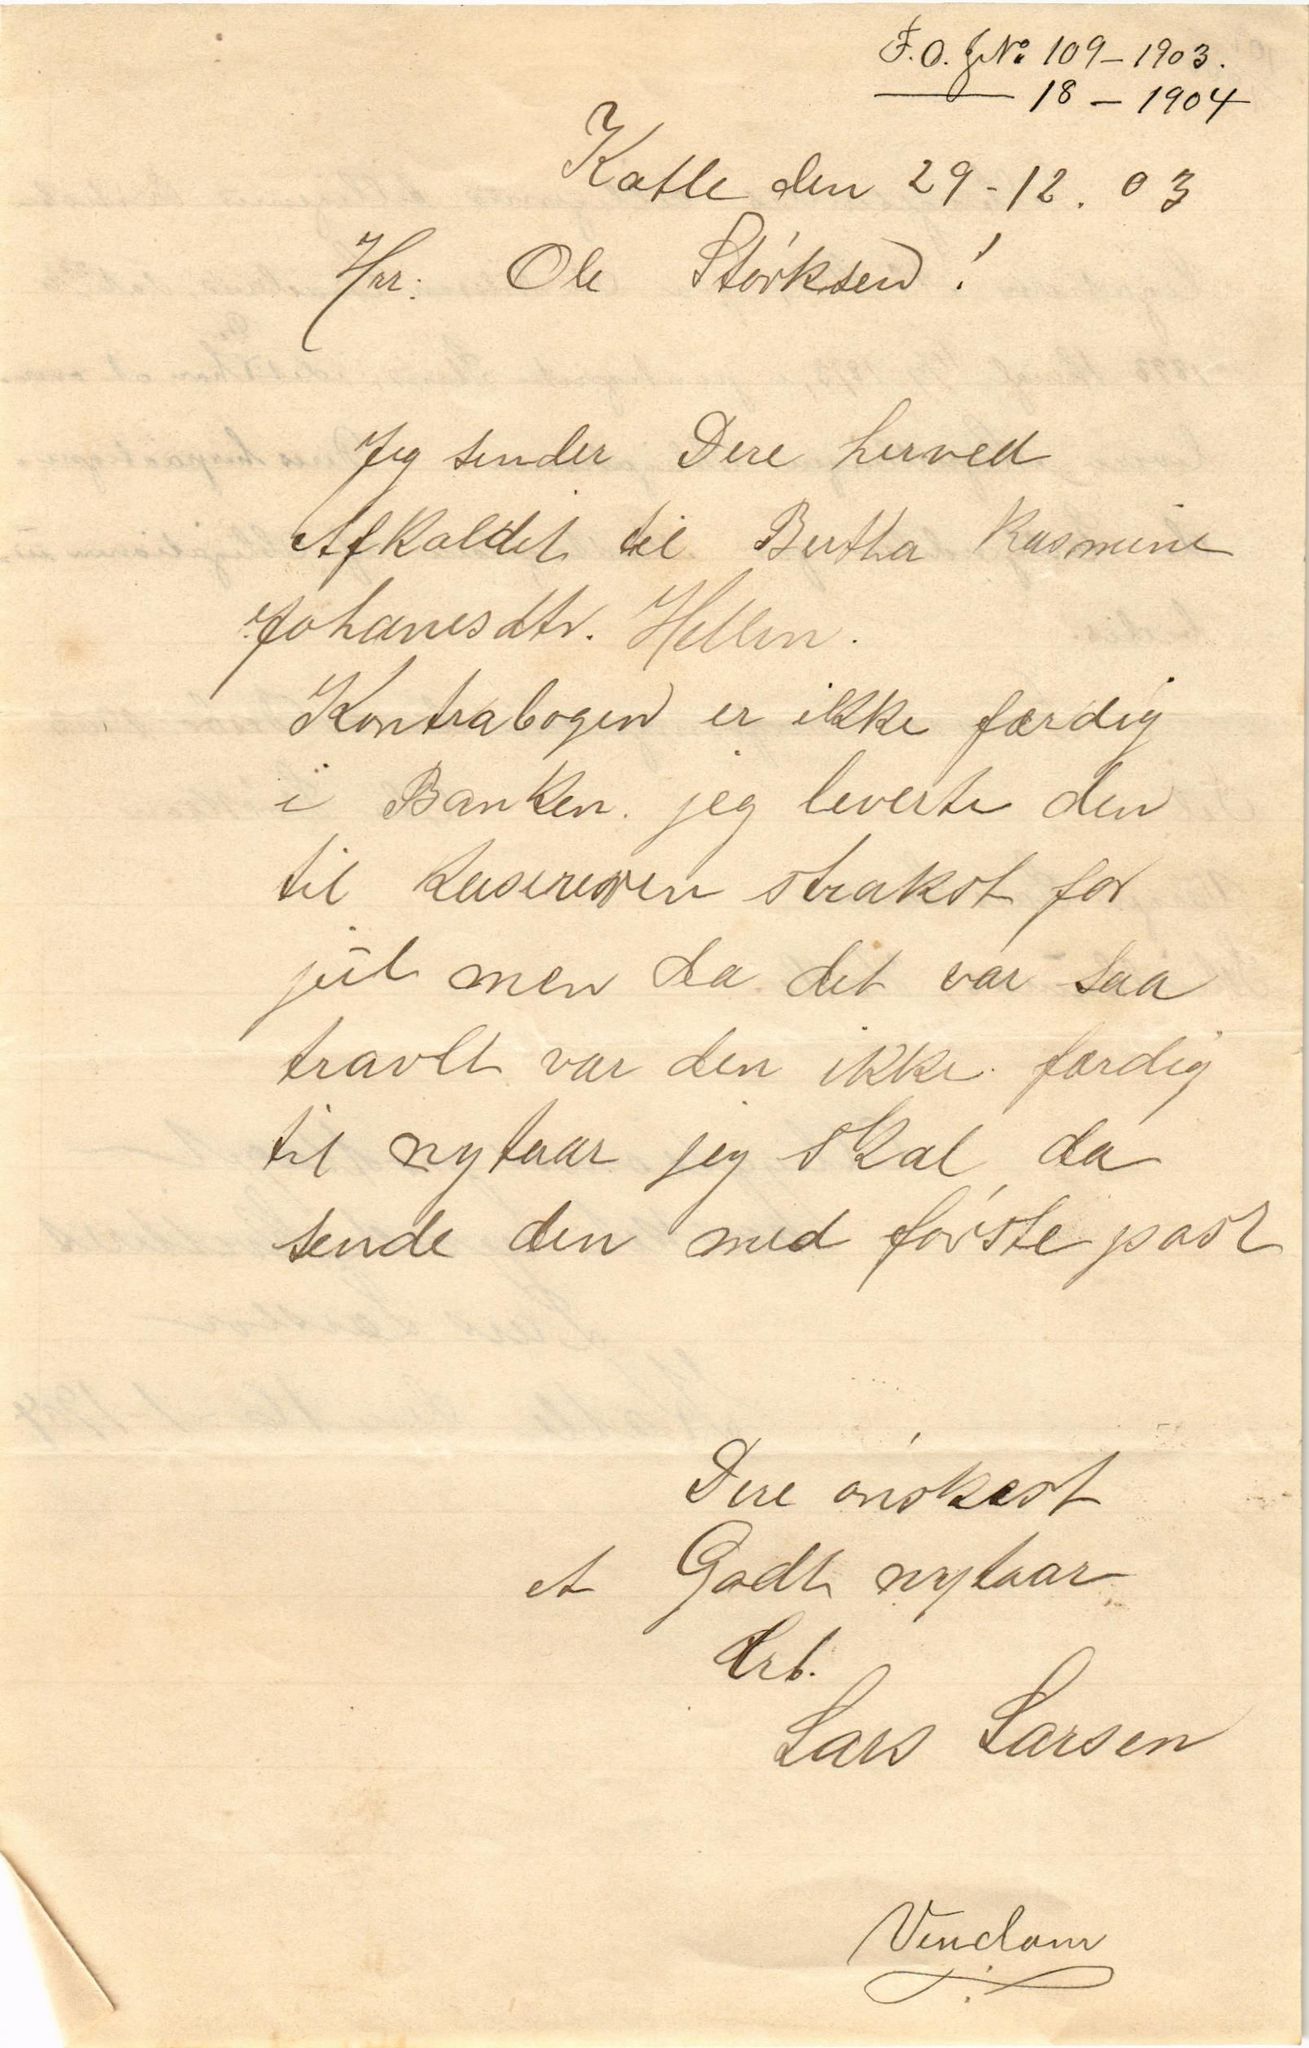 F.O. JNo 109-1903.
18-1904
Katle den 29-12.03
Hr: Ole Störksen!
Jeg sender Dere herved
Afkaldet til Bertha Rasmine
Johanesdtr. Hellen.
Kontrabogen er ikke færdig
i Banken. jeg leverte den
til kasereren strakst for
jul men da det var saa
travlt var den ikke færdig
til nytaar jeg skal da
sende den med förste post
Dere önskest
et Godt nytaar
Erb.
Lars Larsen